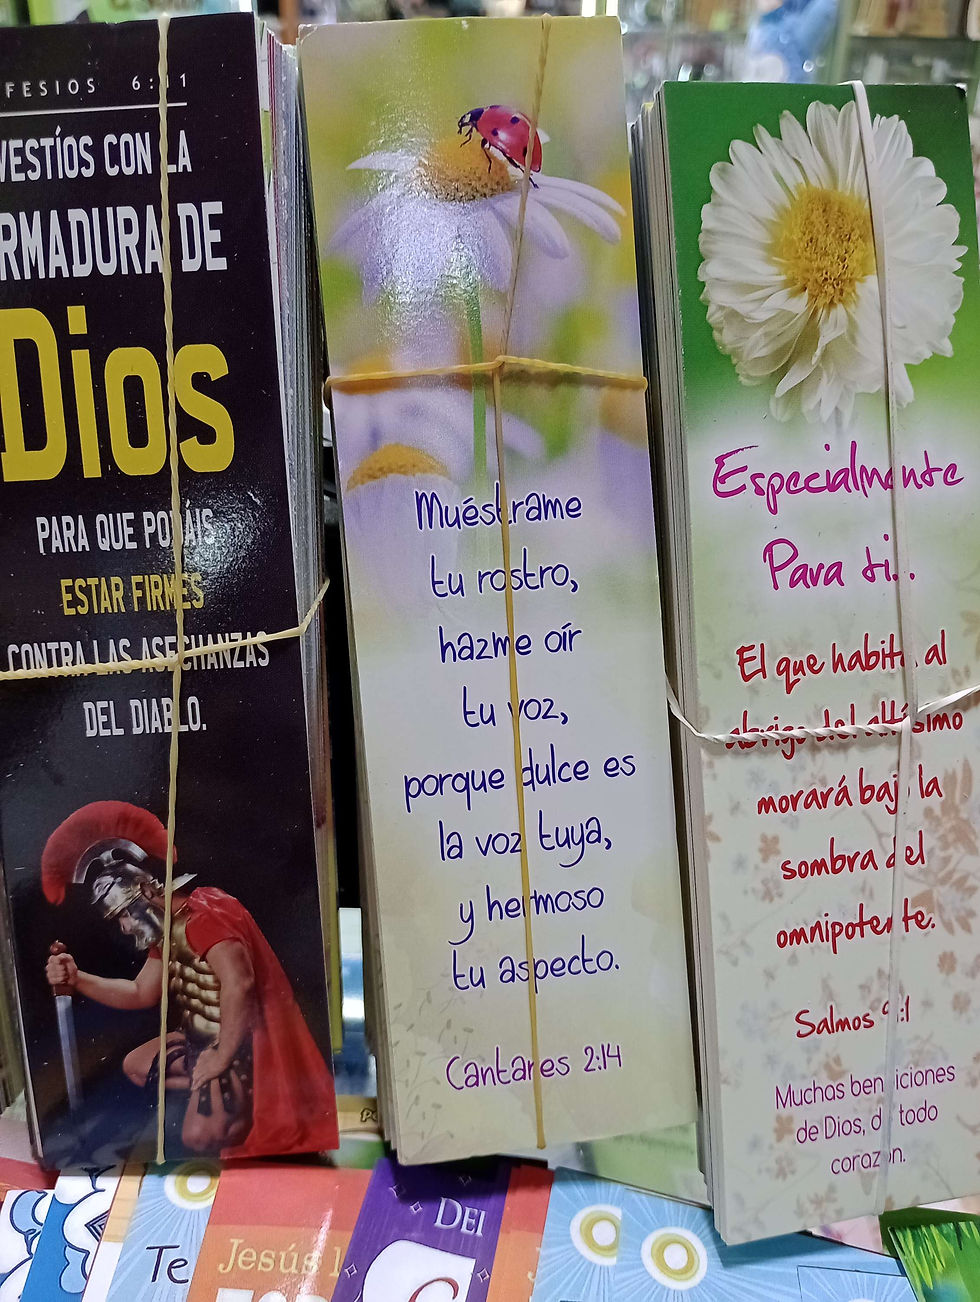 FESIOS 6:11
VESTÍOS CON LA
RMADURA DE
Dios
PARA QUE PODÁIS
ESTAR FIRMES
CONTRA LAS ASECHANZAS
DEL DIABLO.
Muéstrame
tu rostro,
hazme oír
tu voz,
porque dulce es
la voz tuya,
y hermoso
tu aspecto.
Cantares 2:14
Especialmente
Para ti...
El que habita al
abrigo del altísimo
morará bajo la
sombra del
omnipotente.
Salmos 91:1
Muchas bendiciones
de Dios, de todo
corazón.
Te
Jesús
DEL